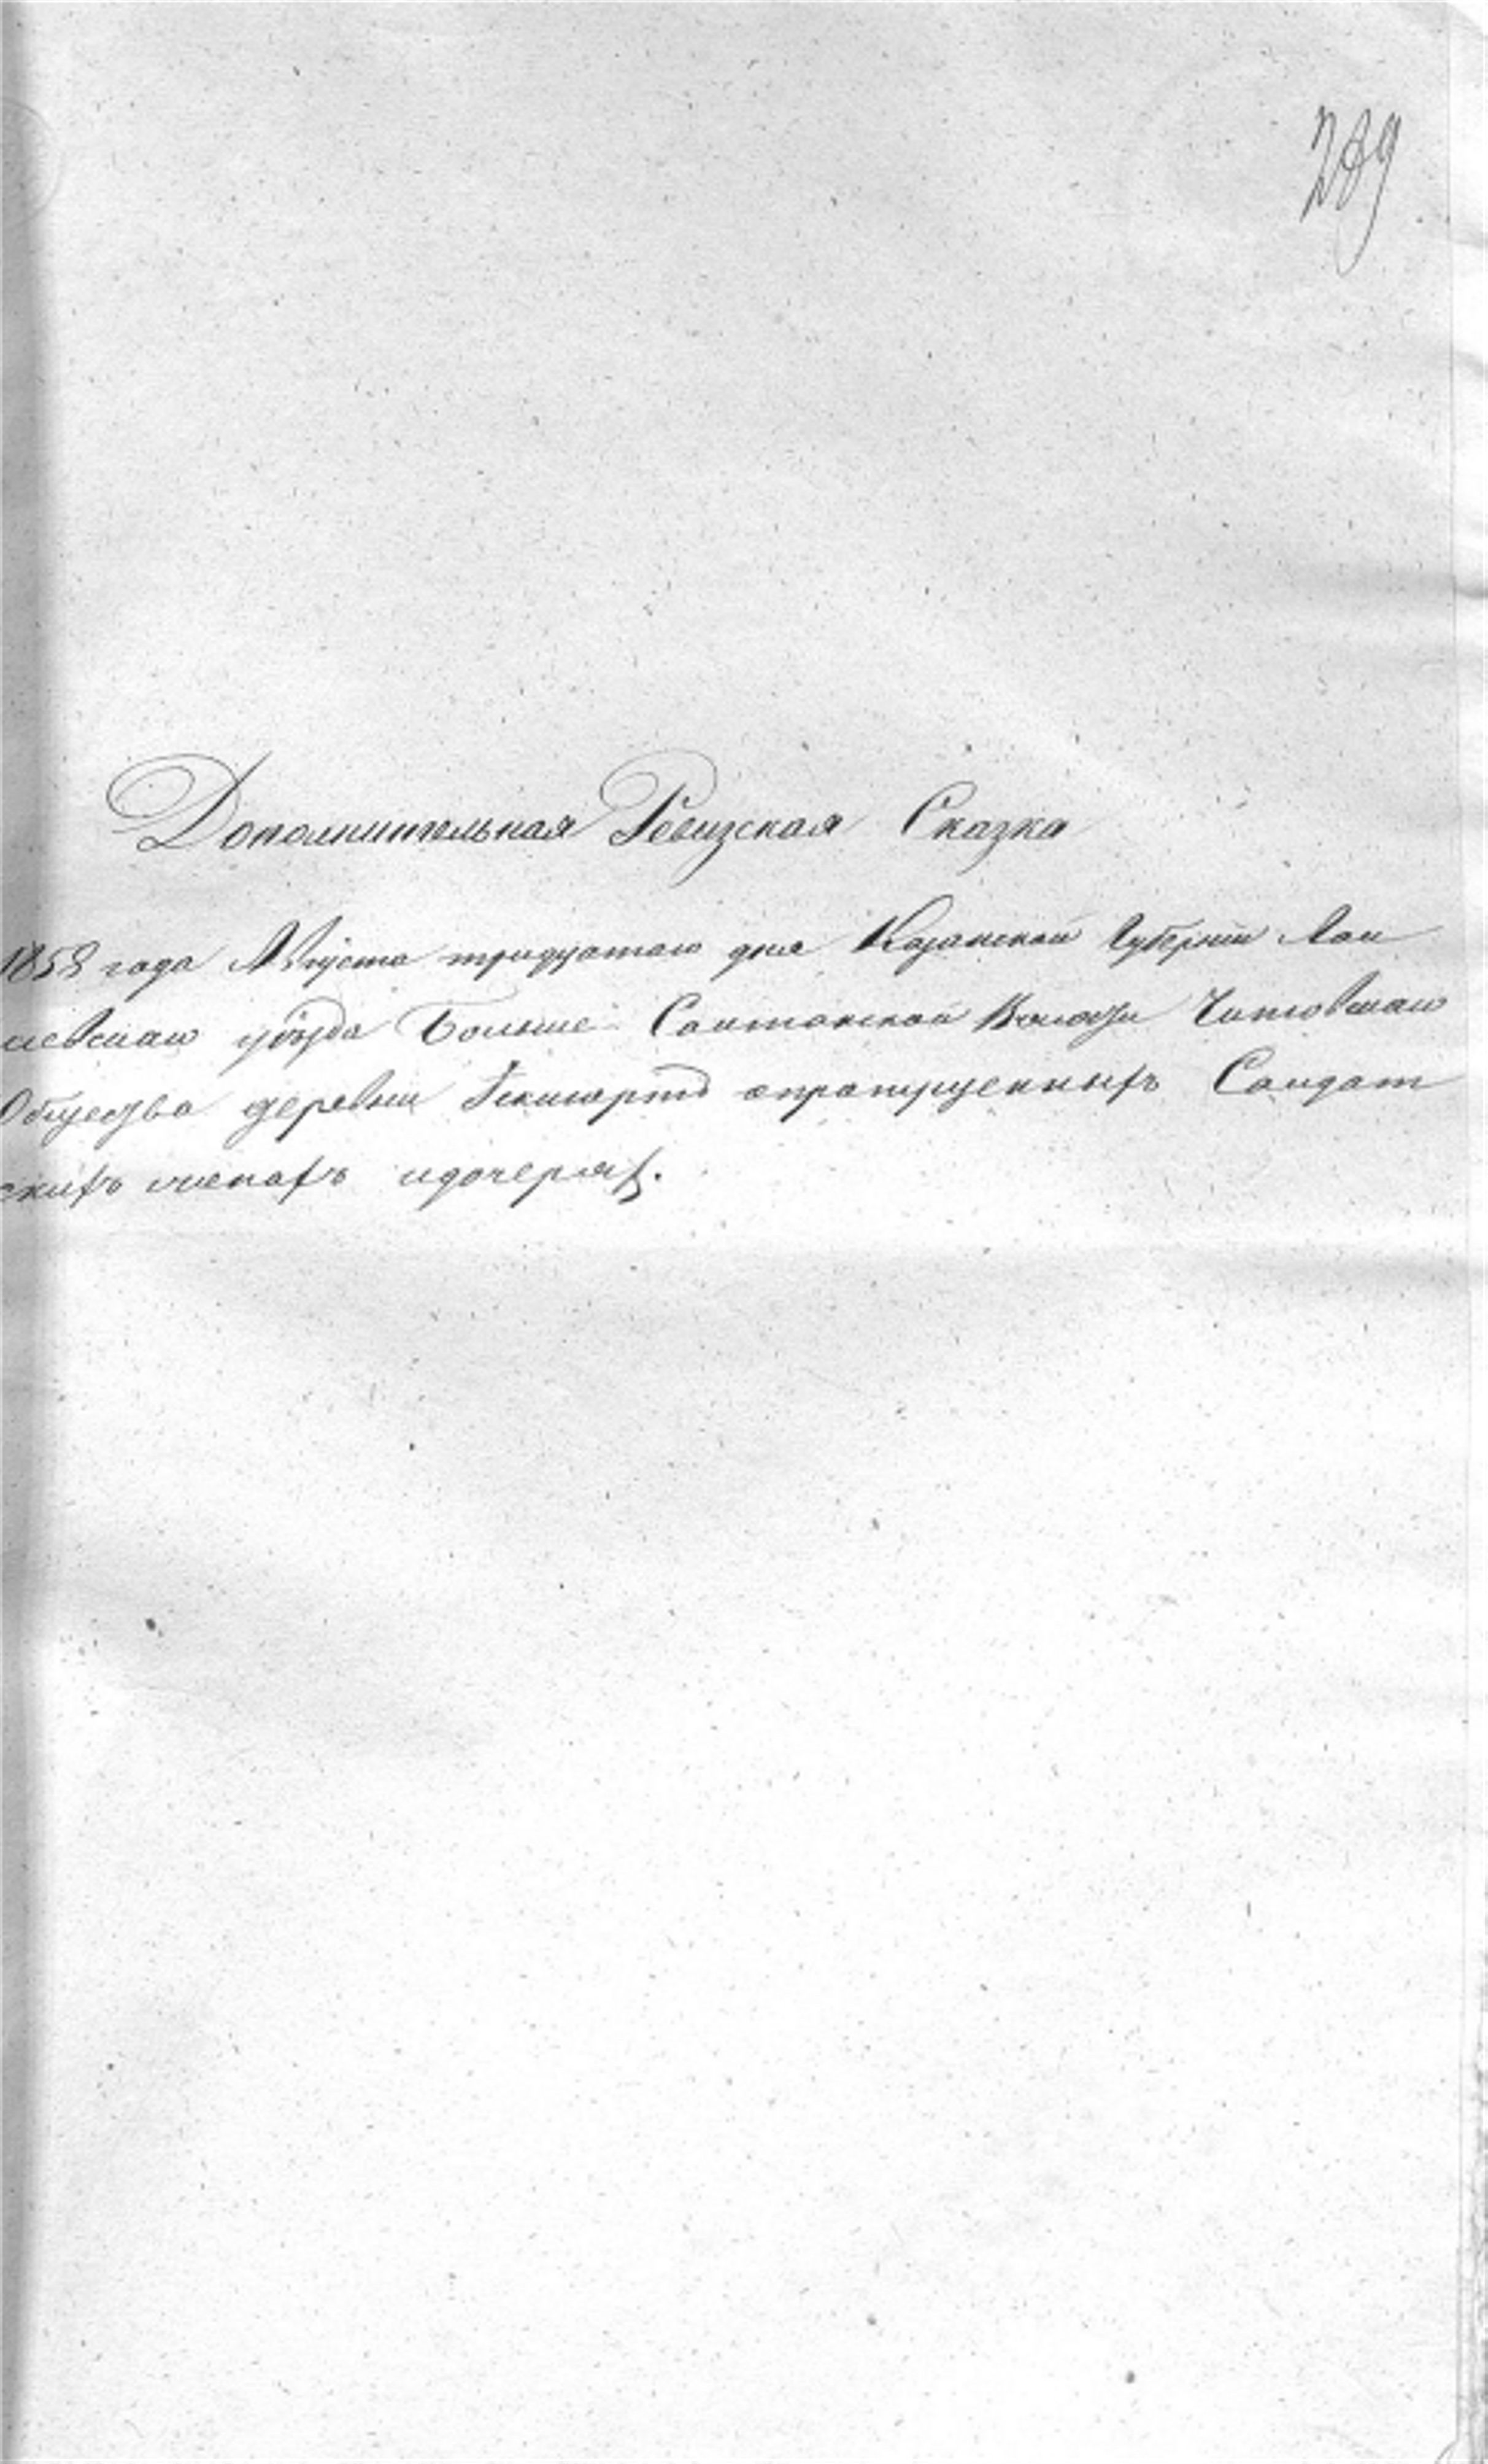 289
Дополнительная Ревизская Сказка
1858 года Августа тридцатаго дня Казанской Губернiи Лаи
шевскаго уѣзда Больше Саитанской Волости
Общества деревни пропущенныхъ Салдат
скихъ женахъ идочеряхъ.